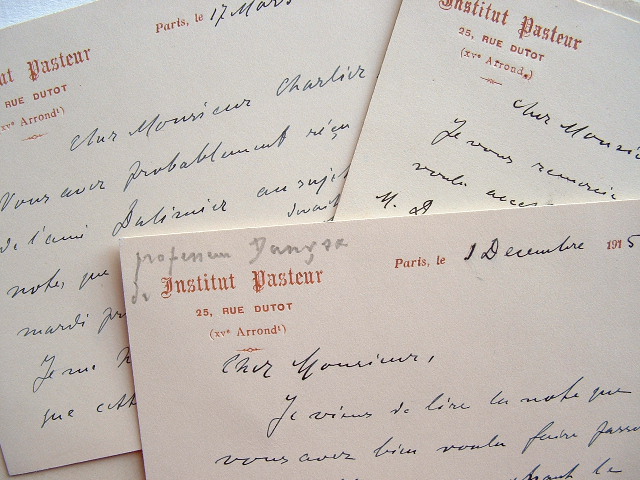 Paris, le 17 Mars
ut Pasteur
RUE DUTOT
(xve Arrondt)
Cher Monsieur Charlier
Vous avez probablement reçu
de l'ami Dalimier au sujet
note, que
mardi
Je me
que cette
Institut Pasteur
25, RUE DUTOT
(xve Arrond.)
Cher Monsie
Je vous remercie
M. D
professeur Danysz
de Institut Pasteur
25, RUE DUTOT
(xve Arrondt)
Paris, le 1 Decembre 1915
Cher Monsieur,
Je viens de lire la note que
vous avez bien voulu faire passe
le